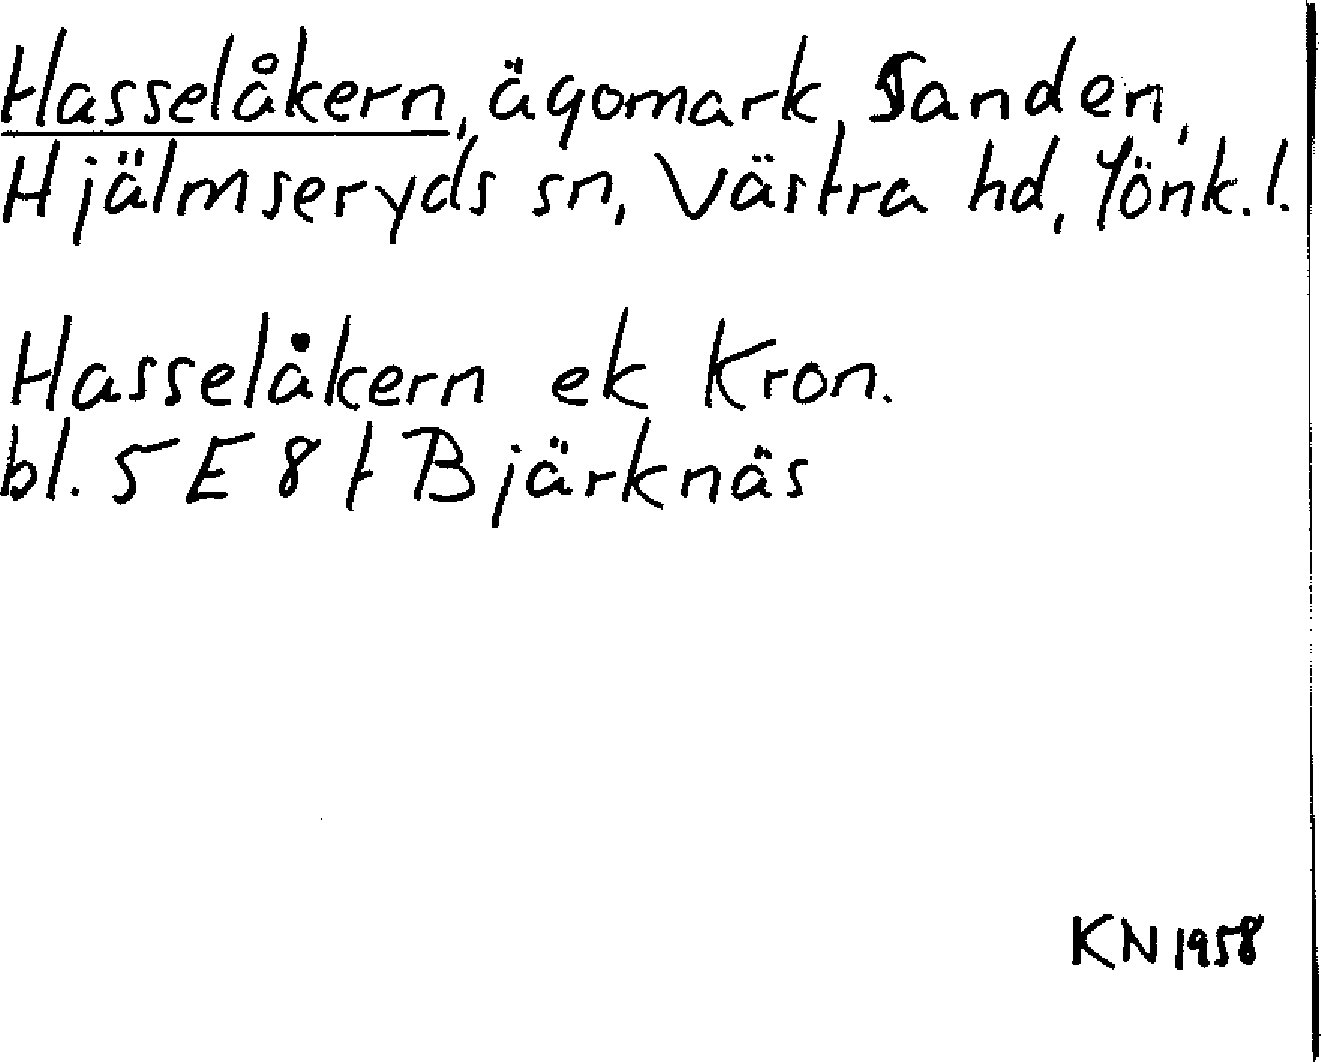 Hasselåkern, ägomark, Sanden,
Hjälmseryds sn, Västra hd, Jönk.l.
Hasselåkern ek Kron.
bl. 5 E 8 f Bjärknäs
KN 1958